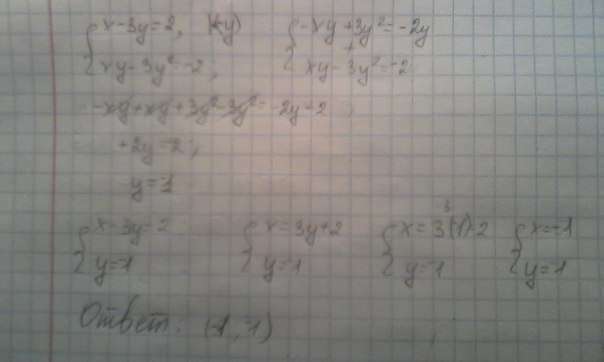 {x-3y=2, |(-y) {-xy+3y²=-2y
{xy-3y²=-2, {xy-3y²=-2
-xy+xy+3y²-3y²=-2y-2
+2y=-2,
y=-1
{x-3y=2 {x=3y+2 {x=3(1)-2 {x=-1
{y=1 {y=1 {y=1 {y=1
Ответ: (-1, 1)